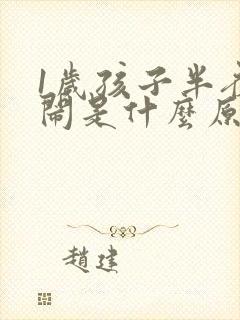 1歲孩子半夜
鬧是什麼原
趙建